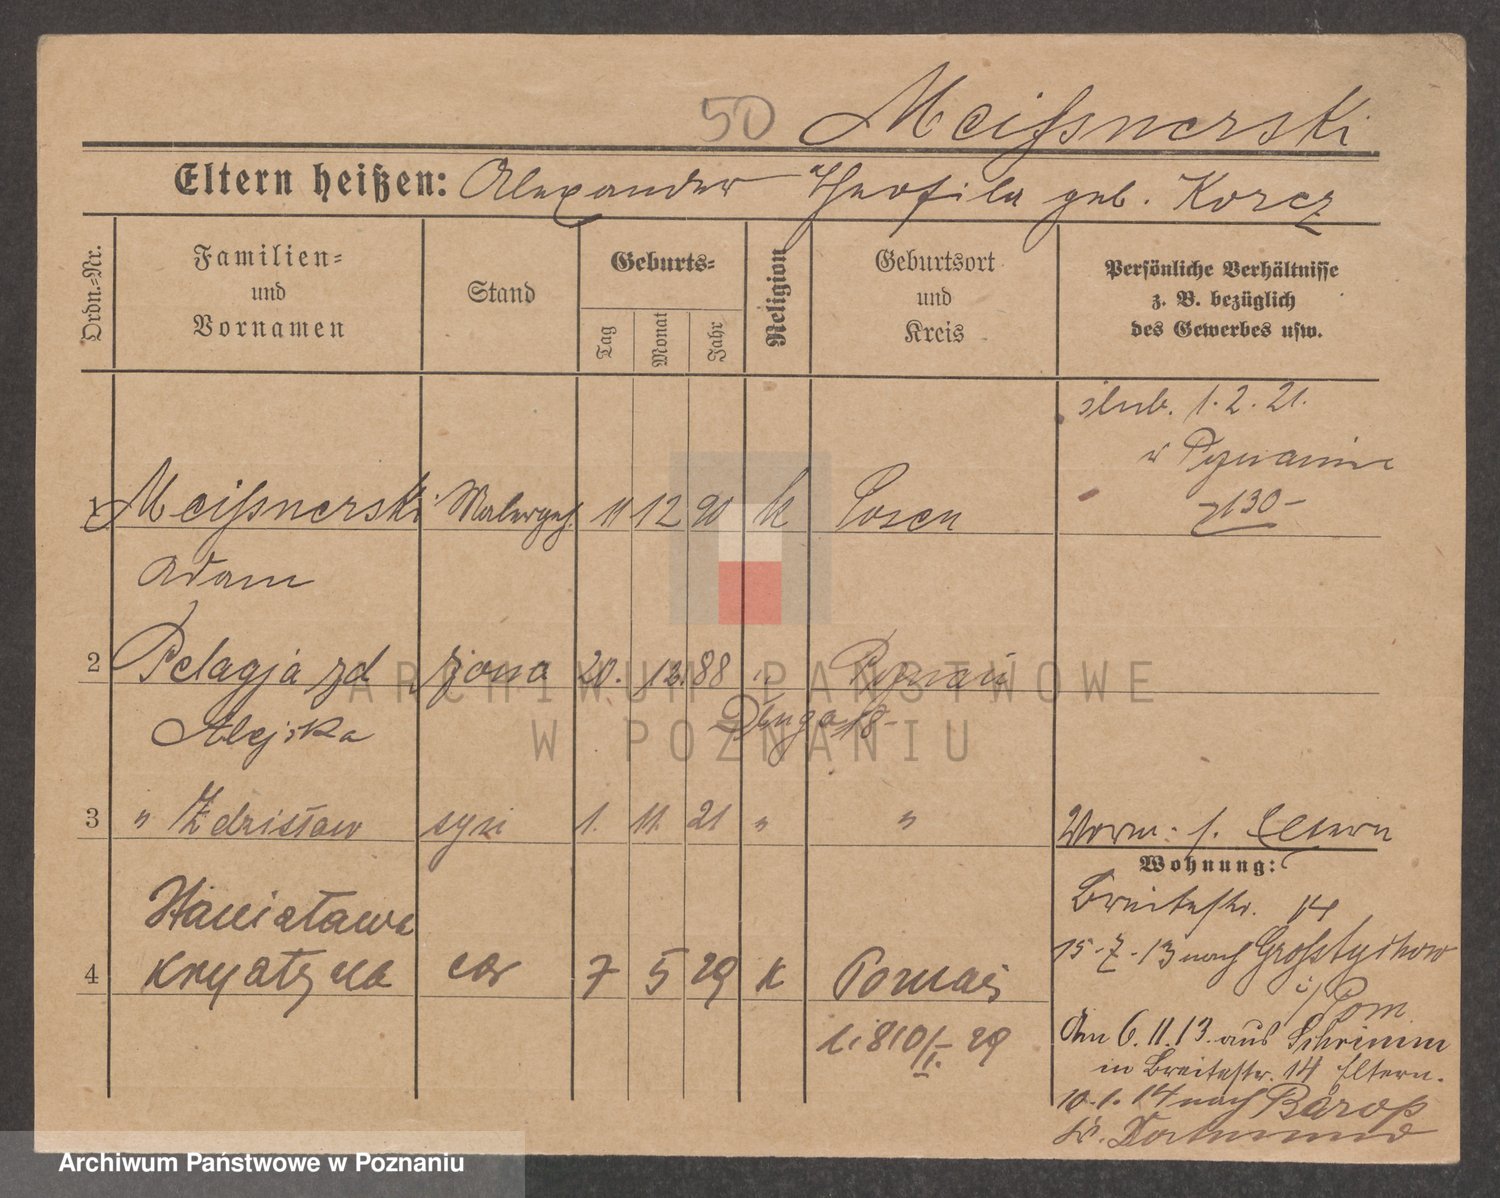 50 Meißnerski
Eltern heißen: Alexander Theofila geb. Korcz
Ordn.=Nr.
Familien=
und
Vornamen
Stand
Geburts=
Tag
Monat
Jahr
Religion
Geburtsort
und
Kreis
Persönliche Verhältnisse
z. B. bezüglich
des Gewerbes usw.
ślub. 1.2.21.
w Poznaniu
130-
1 Meißnerski Malergeh. 11 12 90 k Posen
Adam
2 Pelagja zd żona 20. 12. 88 " Poznań
Alejska Długa 18-
3 " Zdzisław syn 1. 11. 21 " "
Vorm: s. Eltern
Wohnung:
Stanisława
4 Krystyna cór 7 5 29 k Poznań
Li 810/II. 29
Breitestr. 14
15-7-13 nach Grosstychow
i/Pom
Am 6.11.13. aus Schrimm
in Breitestr. 14 Eltern.
10.1.14 nach Barop
Kr. Dortmund
ARCHIWUM PAŃSTWOWE
W POZNANIU
Archiwum Państwowe w Poznaniu